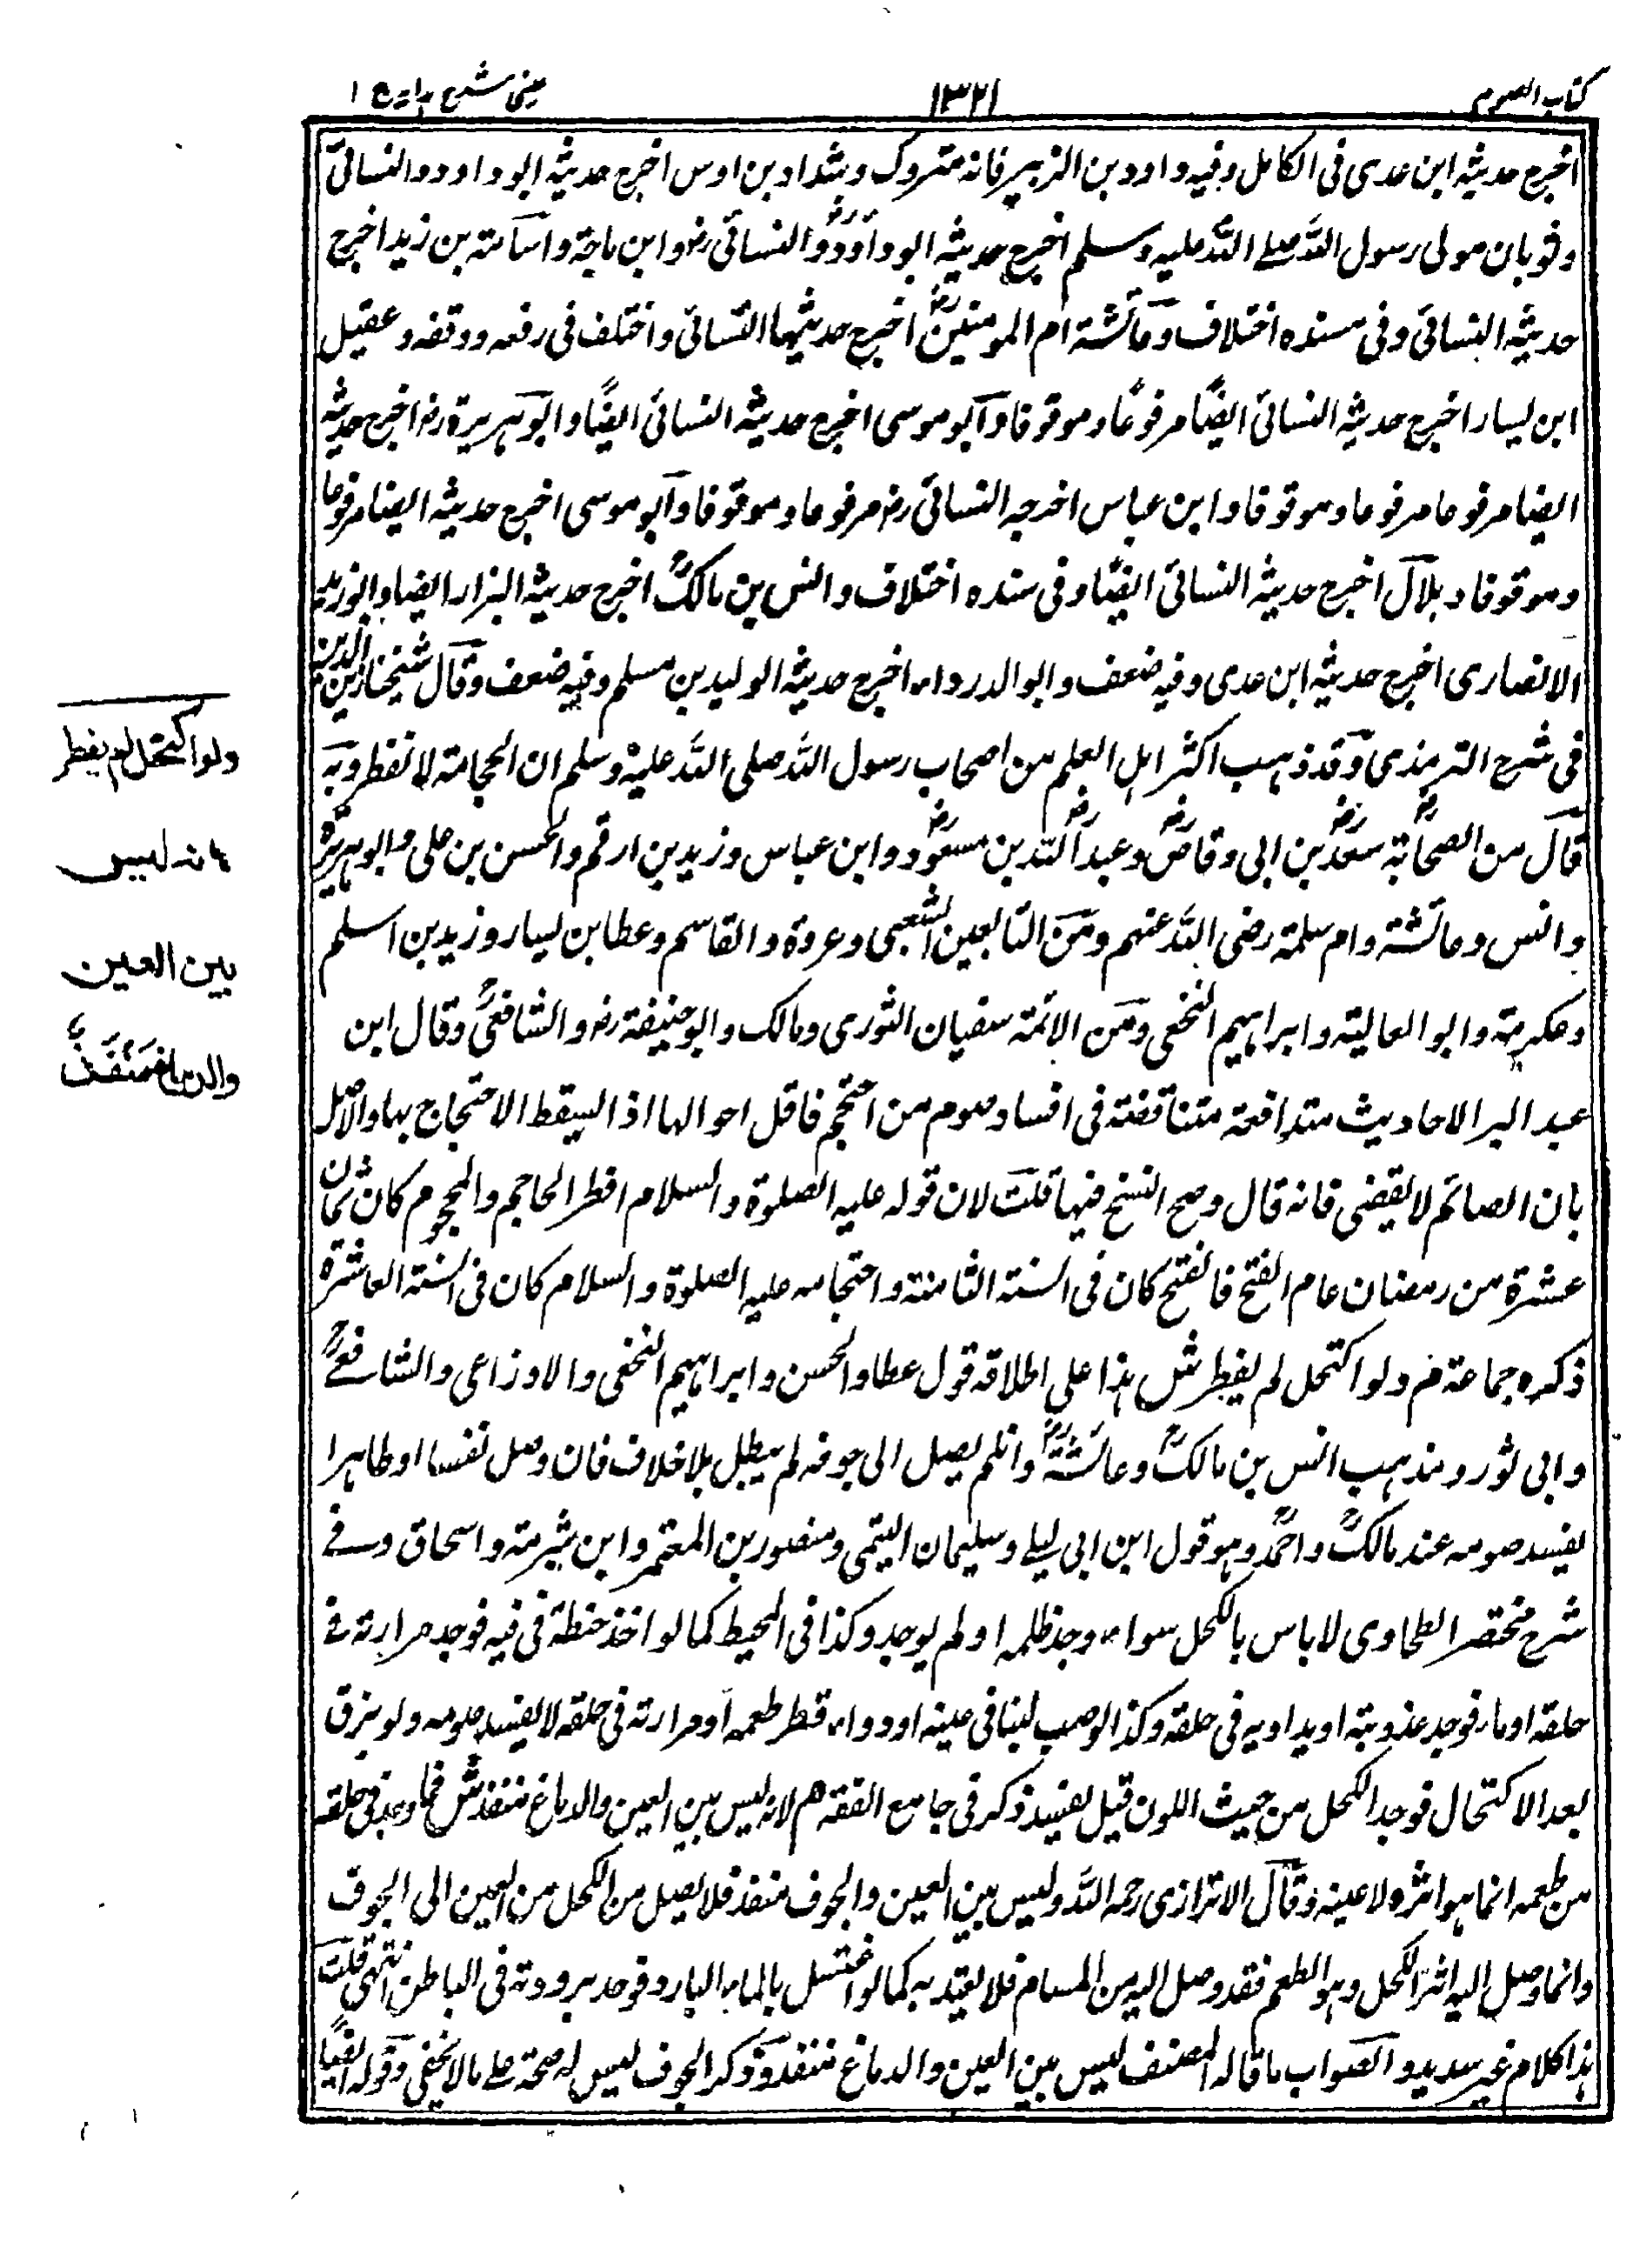 كتاب الصوم
١٣٢١
عينى شرح هداية ج ١
اخرج حديثه ابن عدى فى الكامل وفيه داود بن الزبير فانه متروك وشداد بن اوس اخرج حديثه ابو داود والنسائى
وثوبان مولى رسول الله صلے الله عليه وسلم اخرج حديثه ابو داودؓ والنسائىؓ وابن ماجة واسامة بن زيد اخرج
حديثه النسائى وفى مسنده اختلاف وعائشة ام المومنينؓ اخرج حديثها النسائى واختلف فى رفعه ووقفه وعقيل
ابن يسار اخرج حديثه النسائى ايضًا مرفوعًا وموقوفا وابو موسى اخرج حديثه النسائى ايضًا وابو هريرة رضـ اخرج حديثه
ايضا مرفوعا مرفوعا وموقوفا وابن عباس اخرجه النسائى رضـ مرفوعا وموقوفا وابو موسى اخرج حديثه ايضا مرفوعا
وموقوفا وبلال اخرج حديثه النسائى ايضًا وفى سنده اختلاف وانس بن مالكؓ اخرج حديثه البزار ايضا وابو زيد
الانصارى اخرج حديثه ابن عدى وفيه ضعف وابو الدرداء اخرج حديثه الوليد بن مسلم وفيه ضعف وقال شيخنا زين الدين
فى شرح الترمذى وقد ذهب اكثر اهل العلم من اصحاب رسول الله صلى الله عليه وسلم ان الحجامة لا تفطر وبه
قال من الصحابة سعدؓ بن ابى وقاصؓ وعبد الله بن مسعودؓ وابن عباس وزيد بن ارقم والحسن بن على وابو هريرةؓ
وانس وعائشة وام سلمة رضى الله عنهم ومن التابعين الشعبى وعروة والقاسم وعطا بن يسار وزيد بن اسلم
وعكرمة وابو العالية وابراهيم النخعى ومن الائمة سفيان الثورى ومالك وابو حنيفة رضـ والشافعىؒ وقال ابن
عبد البر الاحاديث متدافعة متناقضة فى افساد صوم من احتجم فاقل احوالها اذ السيقط الاحتجاج بها والاصل
بان الصائم لا يقضى فانه قال وصح النسخ فيها قلت لان قوله عليه الصلوة والسلام افطر الحاجم والمحجوم كان ثمان
عشرة من رمضان عام الفتح فالفتح كان فى السنة الثامنة واحتجامه عليه الصلوة والسلام كان فى السنة العاشرة
ذكره جماعة م ولو اكتحل لم يفطر ش هذا على اطلاقه قول عطا والحسن وابراهيم النخعى والاوزاعى والشافعےؒ
وابى ثور ومذهب انس بن مالكؓ وعائشةؓ وانلم يصل الى جوفه لم يبطل بلا خلاف فان وصل نفسا او ظاهرا
يفسد صومه عند مالكؒ واحمدؒ وهو قول ابن ابى ليلے وسليمان التيمى ومنصور بن المعتمر وابن شبرمة واسحاق وفے
شرح مختصر الطحاوى لا باس بالكحل سواء وجد طعمه او لم يوجد وكذا فى المحيط كما لو اخذ حنظة فى فيه فوجد مرارته فى
حلقه او ماء فوجد عذوبته او يداويه فى حلقه وكذا لو صب لبنا فى عينه او دواء قطر طعمه او مرارته فى حلقه لا يفسد صومه ولو بزق
بعد الاكتحال فوجد الكحل من حيث اللون قيل يفسد ذكر فى جامع الفقه هم لانه ليس بين العين والدماغ منفذ ش فما وجد فى حلقه
من طعمه انما هو اثره لا عينه وقال الاترازى رحمه الله وليس بين العين والجوف منفذ فلا يصل من الكحل من العين الى الجوف
وانما وصل اليه اثر الكحل وهو الطعم فقد وصل اليه من المسام فلا يعتد به كما لو اغتسل بالماء البارد فوجد برودته فى الباطن انتهى قلت
هذا كلام غير سديد والصواب ما قاله المصنف ليس بين العين والدماغ منفذ وذكر الجوف ليس له صحة علے ما لا يخفى وقوله ايضًا
ولو اكتحل لم يفطر
لانه ليس
بين العين
والدماغ منفذ